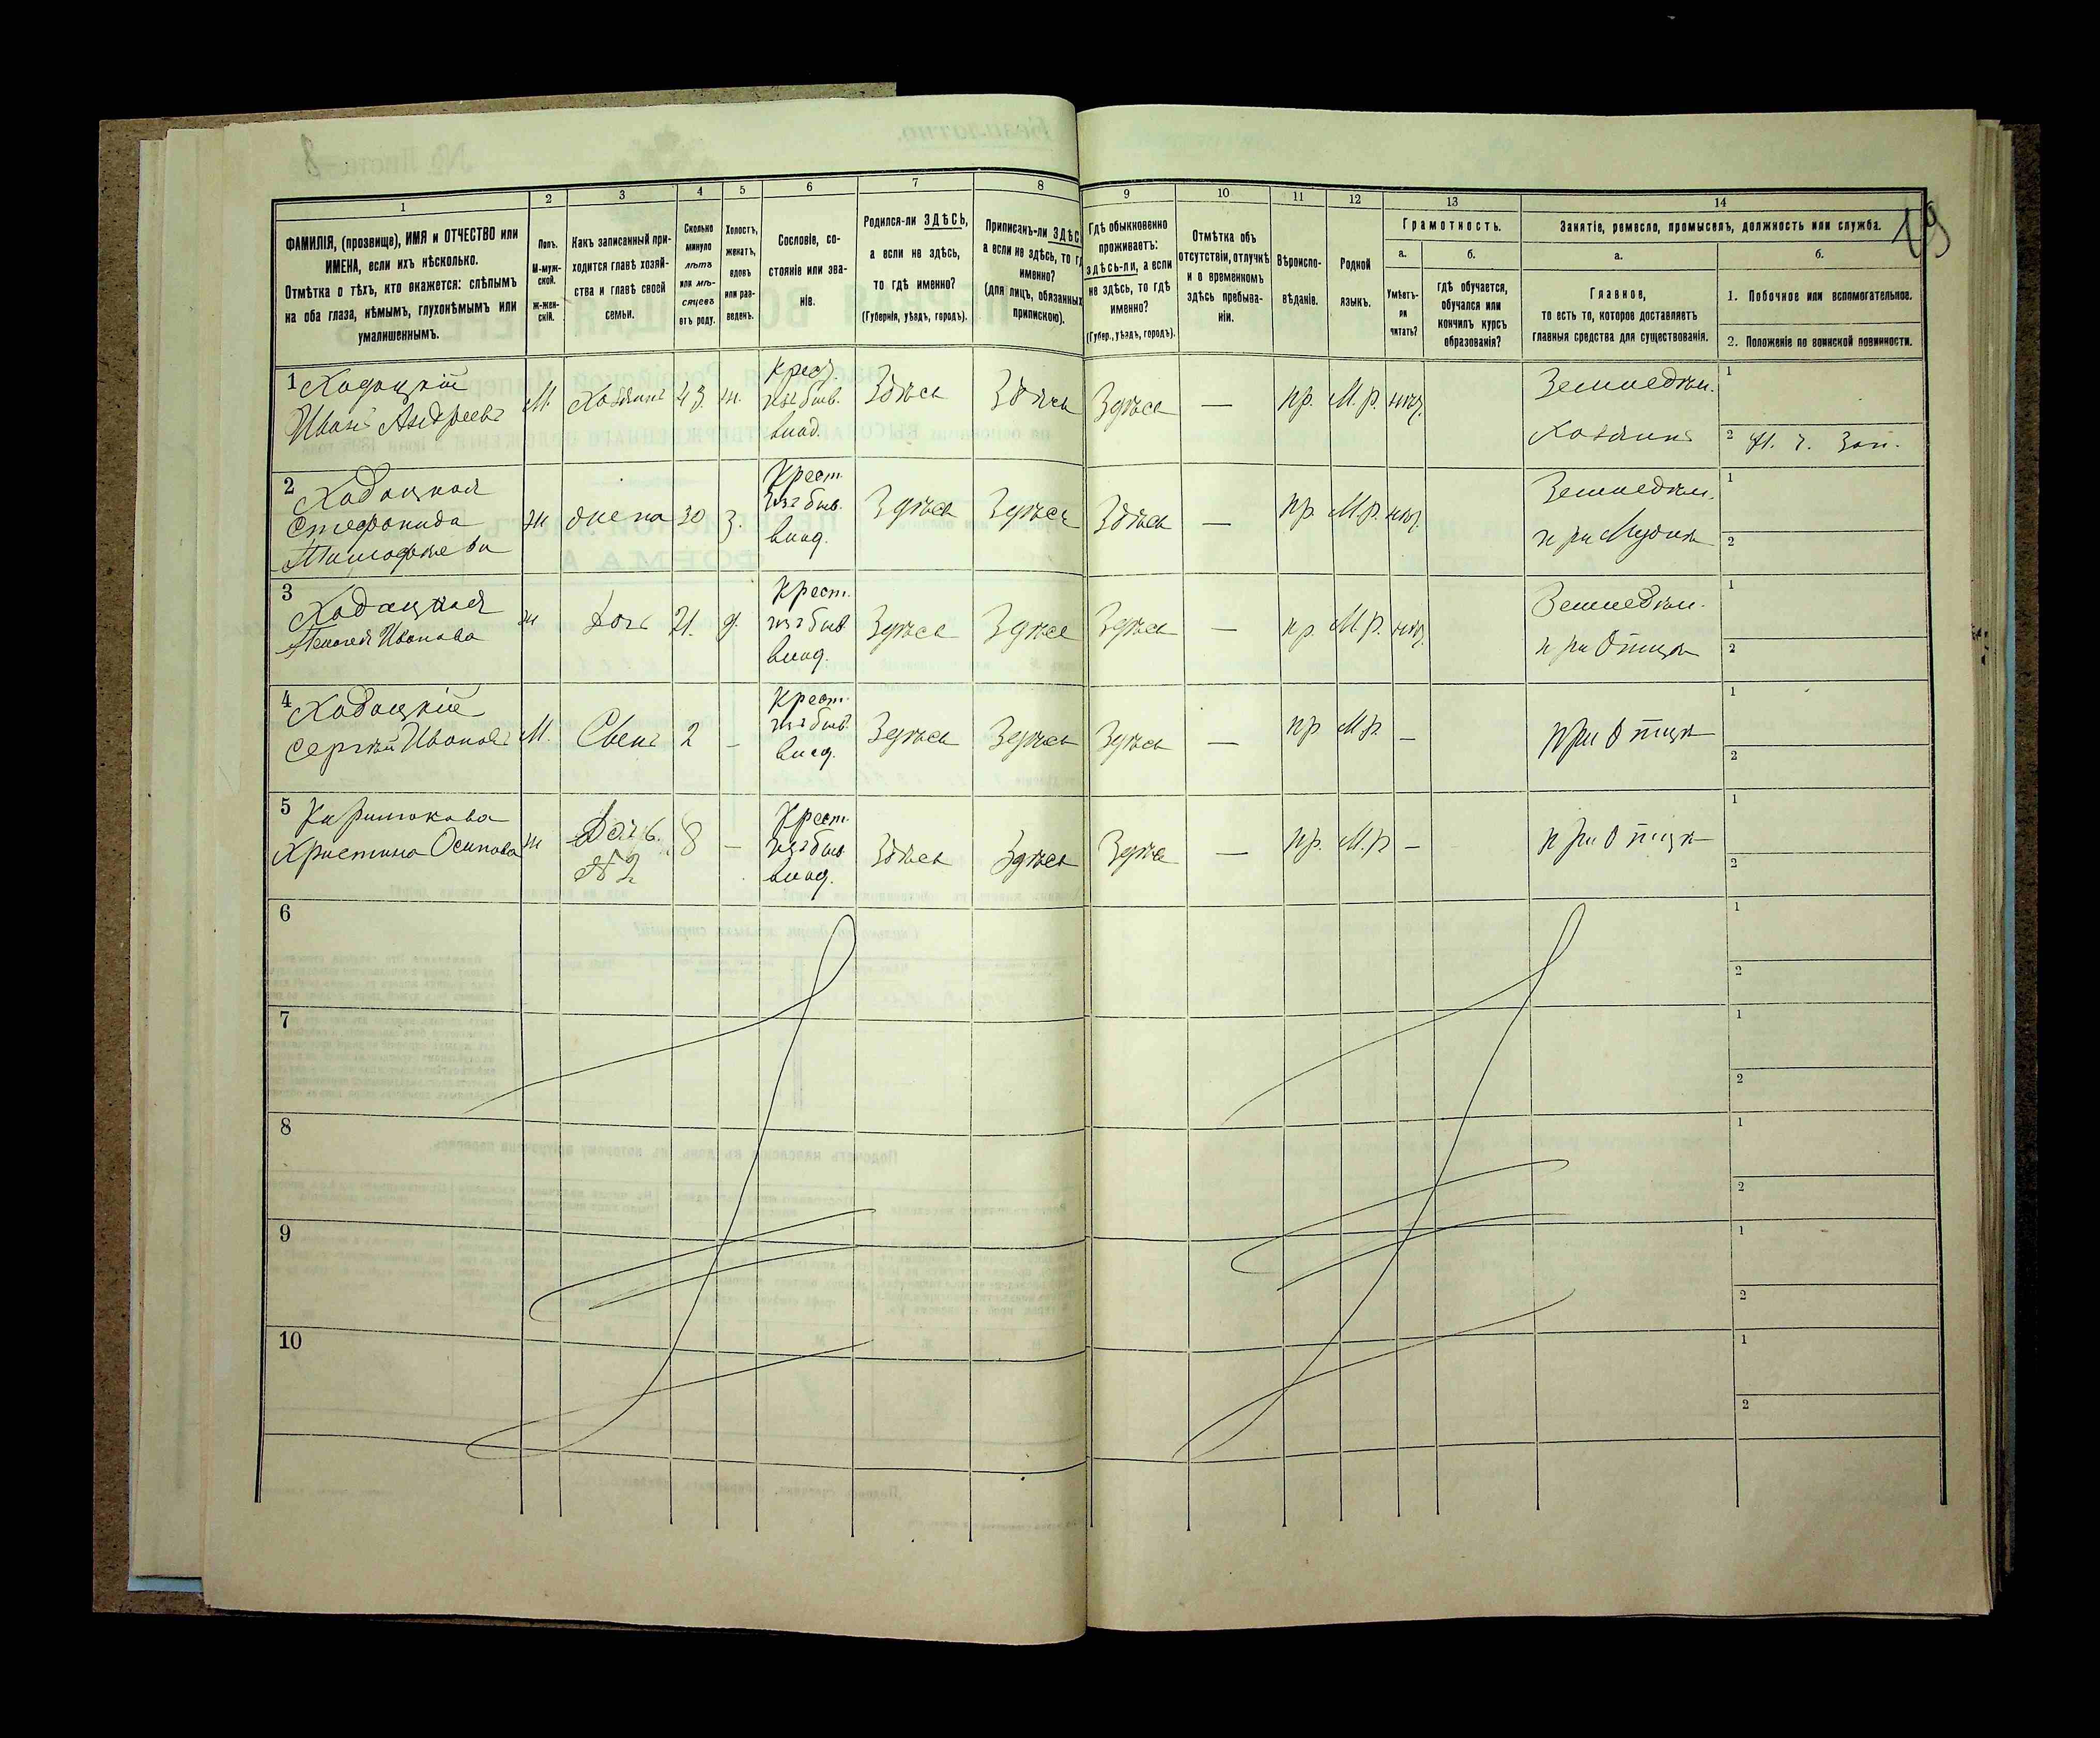 1
ФАМИЛІЯ, (прозвище), ИМЯ и ОТЧЕСТВО или
ИМЕНА, если ихъ нѣсколько.
Отмѣтка о тѣхъ, кто окажется: слѣпымъ
на оба глаза, нѣмымъ, глухонѣмымъ или
умалишеннымъ.
2
Полъ.
М-муж-
ской.
ж-жен-
скій.
3
Какъ записанный при-
ходится главѣ хозяй-
ства и главѣ своей
семьи.
4
Сколько
минуло
лѣтъ
или мѣ-
сяцевъ
отъ роду.
5
Холостъ,
женатъ,
вдовъ
или раз-
веденъ.
6
Сословіе, со-
стояніе или зва-
ніе.
7
Родился-ли ЗДѢСЬ,
а если не здѣсь,
то гдѣ именно?
(Губернія, уѣздъ, городъ).
8
Приписанъ-ли ЗДѢС
а если не здѣсь, то г
именно?
(для лицъ, обязанных
припискою).
9
Гдѣ обыкновенно
проживаетъ:
здѣсь-ли, а если
не здѣсь, то гдѣ
именно?
(Губер., уѣздъ, городъ).
10
Отмѣтка объ
отсутствіи, отлучкѣ
и о временномъ
здѣсь пребыва-
ніи.
11
Вѣроиспо-
вѣданіе.
12
Родной
языкъ.
13
Грамотность.
а.
Умѣетъ-
ли
читать?
б.
гдѣ обучается,
обучался или
кончилъ курсъ
образованія?
14
Занятіе, ремесло, промыселъ, должность или служба.
а.
Главное,
то есть то, которое доставляетъ
главныя средства для существованія.
б.
1. Побочное или вспомогательное.
2. Положеніе по воинской повинности.
19
1 Ходацкій
Иванъ Андреевъ
М. Хозяинъ 43 ж.
Крест.
изъ быв.
влад.
Здѣсь Здѣсь Здѣсь — пр. М.р. нѣт.
Земледѣл.
Хозяинъ
1
2
2 Ходацкая
Стефанида
Тимофѣева
ж жена 30 з.
Крест.
изъ быв.
влад.
Здѣсь Здѣсь Здѣсь — пр. М.р. нѣт.
Земледѣл.
при Мужѣ
1
2
3 Ходацкая
Ивановa
ж Дочь 21. д.
Крест.
изъ быв
влад.
Здѣсь Здѣсь Здѣсь — пр. М.р. нѣт.
Земледѣл.
при Отцѣ
1
2
4 Ходацкій
Сергѣй Ивановъ
М. Сынъ 2 —
Крест.
изъ быв.
влад.
Здѣсь Здѣсь Здѣсь — пр М.р. —
при Отцѣ
1
2
5
Христина Осипова
ж Дочь 8 —
№ 2
Крест.
изъ быв
влад.
Здѣсь Здѣсь Здѣсь — пр. М.р —
при Отцѣ
1
2
6
1
2
7
1
2
8
1
2
9
1
2
10
1
2